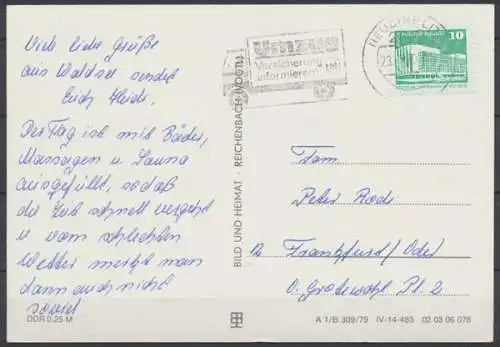 Viele liebe Grüße
aus Waldsee sendet
Euch Heidi.
Der Tag ist mit Bäder,
Massagen u. Sauna
ausgefüllt, sodaß
die Zeit schnell vergeht
u. vom schlechten
Wetter merkt man
dann auch nicht
soviel
DDR 0.25 M
BILD UND HEIMAT · REICHENBACH (VOGTL)
Umzug
Versicherung
informieren!
10
Fam
Peter Rode
Frankfurt/Oder
Pl. 2
A 1/B 309/79 IV-14-483 02 03 06 078